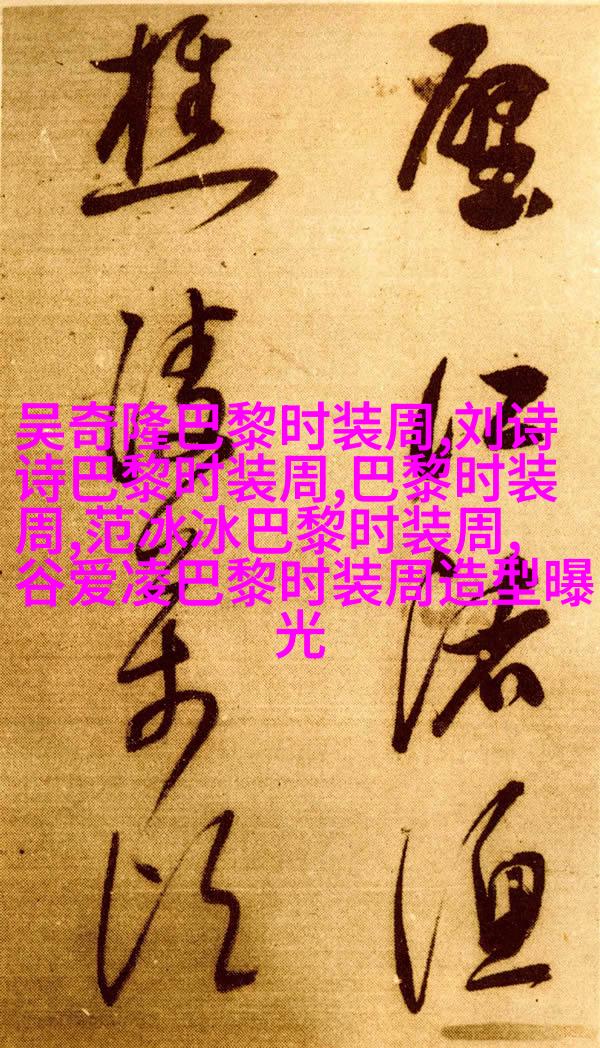 吴奇隆巴黎时装周,刘诗
诗巴黎时装周,巴黎时装
周,范冰冰巴黎时装周,
谷爱凌巴黎时装周造型曝
光
江渚漁
樵